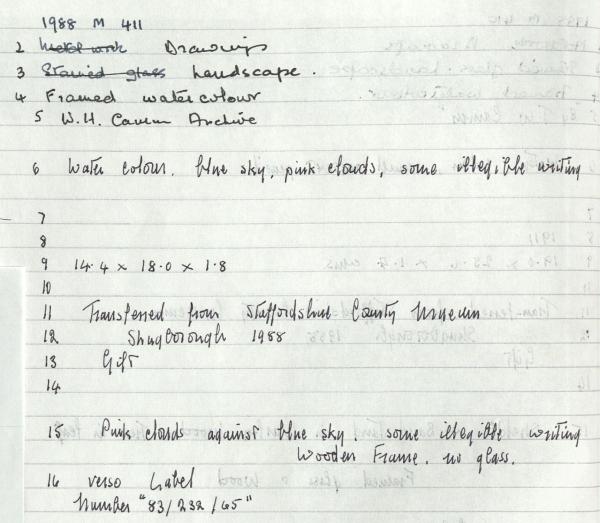 1988 M 411
2 Metalwork Drawings
3 Stained glass Landscape.
4 Framed watercolour
5 W.H. Cavem Archive
6 Water colour. blue sky, pink clouds, some illegible writing
7
8
9 14.4 x 18.0 x 1.8
10
11 Transferred from Staffordshire County Museum
12 Shugborough 1988
13 Gift
14
15 Pink clouds against blue sky. some illegible writing
Wooden Frame. no glass.
16 verso Label
Number "83/232/65"